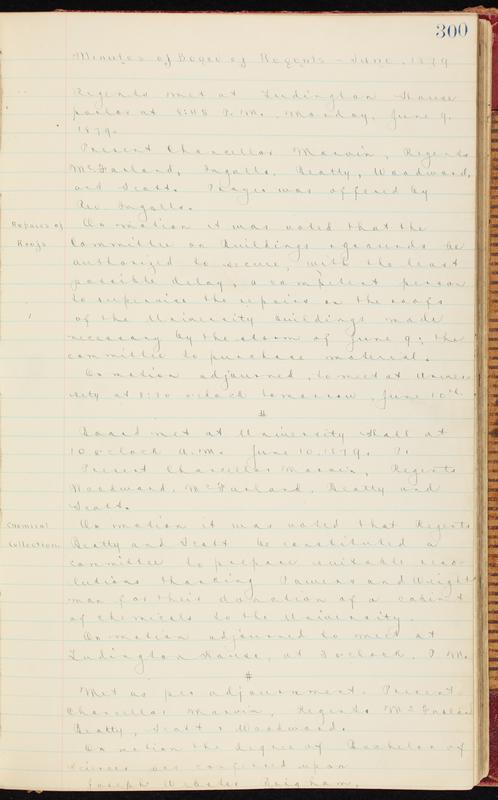 300
Minutes of Board of Regents - June, 1879
Regents met at Ludington House
parlor at 8:45 P. M., Monday, June 9,
1879.
Present Chancellor Marvin, Regents
McFarland, Ingalls, Beatty, Woodward,
and Scott. Prayer was offered by
Rev Ingalls.
Repairs of
Roofs
On motion it was voted that the
Committee on Buildings & grounds be
authorized to secure, with the least
possible delay, a competent person
to supervise the repairs on the roofs
of the University buildings made
necessary by the storm of June 9; the
committee to purchase material.
On motion adjourned, to meet at Univer-
sity at 8:30 o'clock tomorrow, June 10th.
#
Board met at University Hall at
10 o'clock A. M. June 10, 1879.
Present Chancellor Marvin, Regents
Woodward, McFarland, Beatty and
Scott.
Chemical
Collection
On motion it was voted that Regents
Beatty and Scott be constituted a
committee to prepare suitable reso-
lutions thanking Powers and Weight-
man for their donation of a cabinet
of chemicals to the University.
On motion adjourned to meet at
Ludington House, at 3 o'clock, P. M.
#
Met as per adjournment. Present
Chancellor Marvin, Regents McFarland
Beatty, Scott & Woodward.
On motion the degree of Bachelor of
Science was conferred upon
Joseph Webster Brigham,